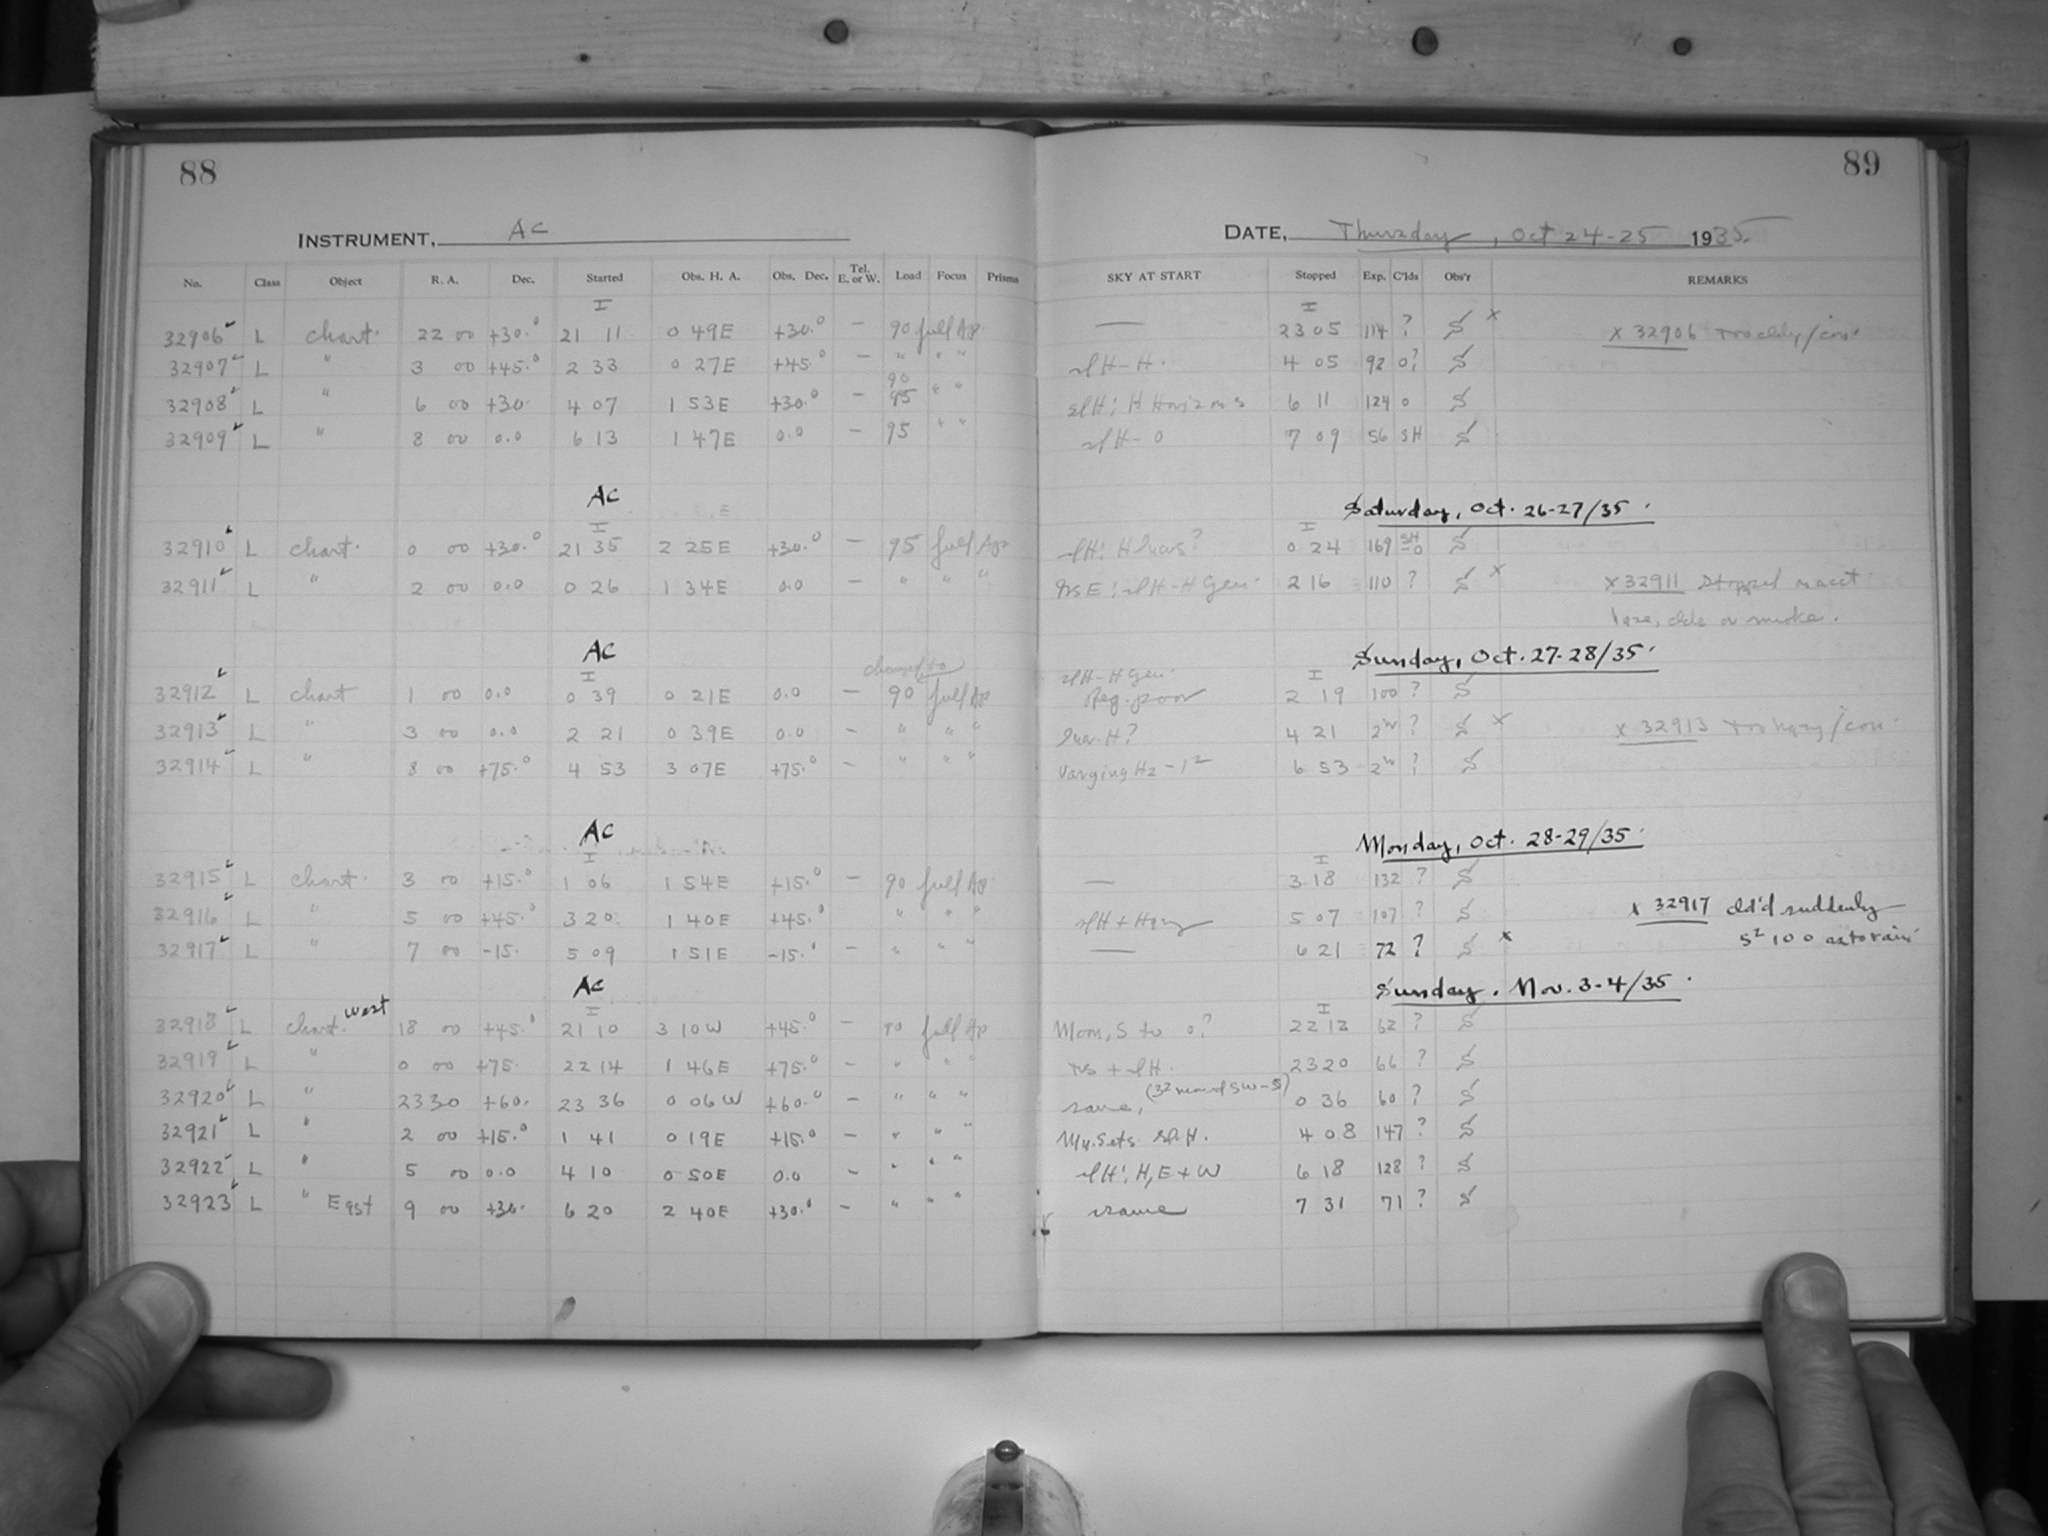 88
INSTRUMENT, AC
No. Class Object R. A. Dec. Started Obs. H. A. Obs. Dec. Tel. E. or W. Load Focus Prisms
I
32906 L chart. 22 00 +30.° 21 11 0 49E +30.° — 90 full Ap.
32907 L " 3 00 +45.° 2 33 0 27E +45.° — " " "
32908 L " 6 00 +30. 4 07 1 53E +30.° — 90 95 " "
32909 L " 8 00 0.0 6 13 1 47E 0.0 — 95 " "
AC
I
32910 L chart. 0 00 +30.° 21 35 2 25E +30.° — 95 full Ap
32911 L " 2 00 0.0 0 26 1 34E 0.0 — " " "
AC
I changed to
32912 L chart 1 00 0.0 0 39 0 21E 0.0 — 90 full Ap
32913 L " 3 00 0.0 2 21 0 39E 0.0 — " " "
32914 L " 8 00 +75.° 4 53 3 07E +75.° — " " "
AC
I
32915 L chart. 3 00 +15.° 1 06 1 54E +15.° — 90 full Ap.
32916 L " 5 00 +45.° 3 20 1 40E +45.° " " "
32917 L " 7 00 -15. 5 09 1 51E -15.° — " " "
AC
I
32918 L chart. west 18 00 +45.° 21 10 3 10W +45.° — 90 full Ap
32919 L " 0 00 +75. 22 14 1 46E +75.° — " " "
32920 L " 23 30 +60. 23 36 0 06W +60.° — " " "
32921 L " 2 00 +15.° 1 41 0 19E +15.° — " " "
32922 L " 5 00 0.0 4 10 0 50E 0.0 — " " "
32923 L " East 9 00 +30. 6 20 2 40E +30.° — " " "
89
DATE, Thursday, Oct 24-25 1935.
SKY AT START Stopped Exp. C'lds Obs'r REMARKS
I
— 23 05 114 ? S x x 32906 
slH-H. 4 05 92 0? S
slH! H Horizons 6 11 124 0 S
slH-0 7 09 56 SH S
Saturday, Oct. 26-27/35.
I
slH! H 0 24 169 SH-0 S
slH-H Gen. 2 16 110 ? S x x 32911 Stopped
haze, clds or smoke.
Sunday, Oct. 27-28/35.
slH-H Gen. I
Reg. poor 2 19 100 ? S
H? 4 21 2h ? S x x 32913
Varying H2-1² 6 53 2h ? S
Monday, Oct. 28-29/35.
I
— 3 18 132 ? S
slH + Hazy 5 07 107 ? S x 32917 cld'd suddenly
— 6 21 72 ? S x
Sunday. Nov. 3-4/35.
I
Moon, S to 0? 22 12 62 ? S
+ slH. 23 20 66 ? S
same, 0 36 60 ? S
Sets slH. 4 08 147 ? S
slH! H, E + W 6 18 128 ? S
same 7 31 71 ? S